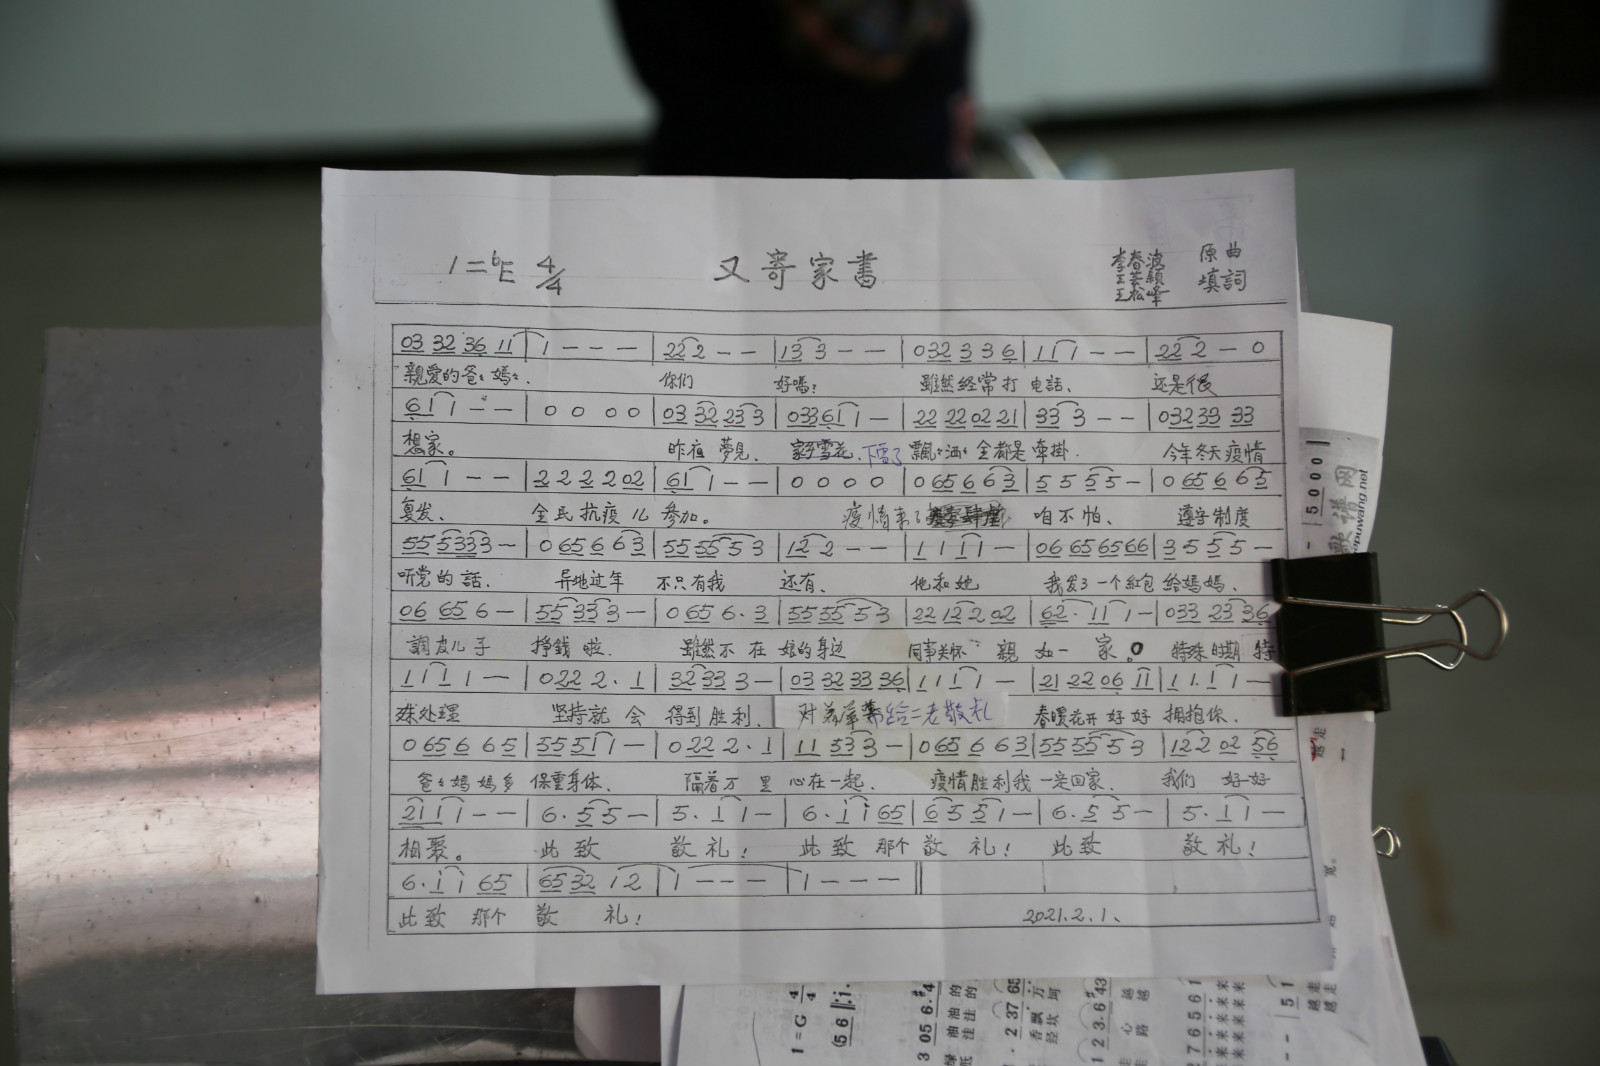 1=♭E 4/4 又寄家書 李春波 原曲
王芸穎
王松峰 填詞
03 32 36 11 | 1 - - - | 22 2 - - | 13 3 - - | 032 3 3 6 | 11 1 - - | 22 2 - 0
親愛的爸〻媽〻. 你们 好嗎? 雖然经常打 电話、 还是很
61 1 - - | 0 0 0 0 | 03 32 23 3 | 033 61 1 - | 22 22 02 21 | 33 3 - - | 032 33 33
想家。 昨夜 夢見、 下雪了 飄〻洒〻 全都是 牵掛. 今年冬天疫情
61 1 - - | 2 2 2 2 02 | 61 1 - - | 0 0 0 0 | 0 65 6 6 3 | 5 5 5 5 - | 0 65 6 6 5
复发、 全民抗疫儿 参加。 疫情来了 咱不怕、 遵守制度
55 5 33 3 - | 0 65 6 6 3 | 55 55 5 3 | 12 2 - - | 1 1 1 1 - | 06 65 65 66 | 3 5 5 5 -
听党的話. 异地过年 不只有我 还有、 他和她 我发了一个紅包 给媽媽、
06 65 6 - | 55 33 3 - | 0 65 6 · 3 | 55 55 5 3 | 22 12 2 02 | 62 · 11 1 - | 033 23 36
調皮儿子 挣錢啦. 雖然不在 娘的身边 同事关怀 親如一家。 特殊时期 特
1 1 1 1 - | 0 22 2 · 1 | 32 33 3 - | 03 32 33 36 | 1 1 1 1 - | 21 22 06 11 | 1 1 · 1 1 -
殊处理 坚持就会 得到胜利、 对 给二老敬礼 春暖花开好好 拥抱你、
0 65 6 6 5 | 55 51 1 - | 0 22 2 · 1 | 11 53 3 - | 0 65 6 6 3 | 55 55 5 3 | 12 2 02 56
爸〻媽媽多 保重身体、 隔着万里 心在一起. 疫情胜利我 一定回家. 我们 好好
21 1 1 - - | 6 · 5 5 - | 5 · 1 1 - | 6 · 1 1 65 | 6 5 5 1 - | 6 · 5 5 - | 5 · 1 1 -
相聚。 此致 敬礼! 此致那个敬礼! 此致 敬礼!
6 · 1 1 65 | 65 32 1 2 | 1 - - - | 1 - - - ‖
此致那个敬礼! 2021.2.1、
5 0 0 0 |
歌谱网
epuwang.net
1=G 4/4